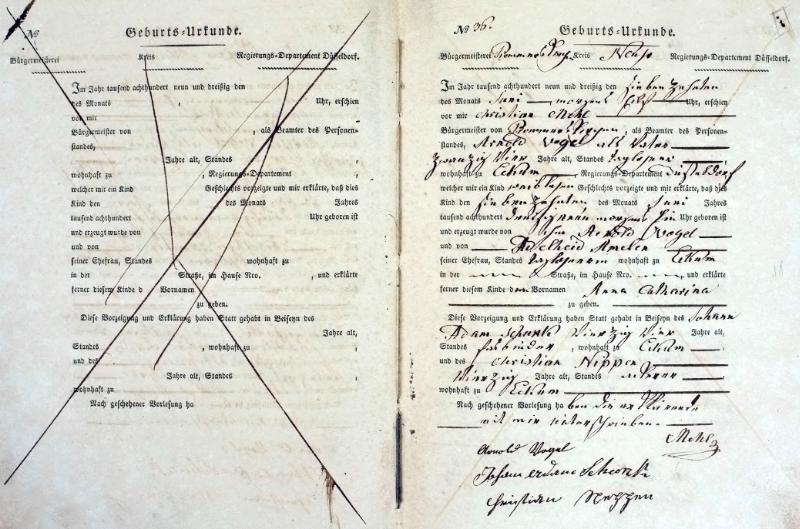 №
Geburts-Urkunde.
Bürgermeisterei Kreis Regierungs-Departement Düsseldorf.
Im Jahr tausend achthundert neun und dreißig den
des Monats , Uhr, erschien
vor mir
Bürgermeister von , als Beamter des Personen-
standes,
Jahre alt, Standes ,
wohnhaft zu , Regierungs-Departement ,
welcher mit ein Kind Geschlechts vorzeigte und mir erklärte, daß dies
Kind den des Monats Jahres
tausend achthundert Uhr geboren ist
und erzeugt wurde von
und von
seiner Ehefrau, Standes wohnhaft zu
in der Straße, im Hause Nro. , und erklärte
ferner diesem Kinde d Vornamen
zu geben.
Diese Vorzeigung und Erklärung haben Statt gehabt in Beiseyn des
Jahre alt,
Standes , wohnhaft zu ,
und des
Jahre alt, Standes ,
wohnhaft zu
Nach geschehener Vorlesung ha
№ 36.
Geburts-Urkunde.
Bürgermeisterei Kreis Neuß Regierungs-Departement Düsseldorf.
Im Jahr tausend achthundert neun und dreißig den siebenzehnten
des Monats Juni morgens Uhr, erschien
vor mir Christian Mehl
Bürgermeister von , als Beamter des Personen-
standes, Arnold Vogel als Vater
zwanzig vier Jahre alt, Standes Taglöhner
wohnhaft zu Eckum , Regierungs-Departement Düsseldorf
welcher mit ein Kind weiblichen Geschlechts vorzeigte und mir erklärte, daß dies
Kind den siebenzehnten des Monats Juni Jahres
tausend achthundert dreißig neun morgens Uhr geboren ist
und erzeugt wurde von ihm Arnold Vogel
und von Adelheid
seiner Ehefrau, Standes wohnhaft zu Eckum
in der Straße, im Hause Nro. , und erklärte
ferner diesem Kinde den Vornamen Anna Catharina
zu geben.
Diese Vorzeigung und Erklärung haben Statt gehabt in Beiseyn des Johann
Adam Schenk vierzig vier Jahre alt,
Standes Faßbinder , wohnhaft zu Eckum
und des Christian Neppen
vierzig Jahre alt, Standes
wohnhaft zu Eckum
Nach geschehener Vorlesung haben die
mit mir unterschrieben.
Mehl
Arnold Vogel
Johann Adam Schenk
Christian Neppen